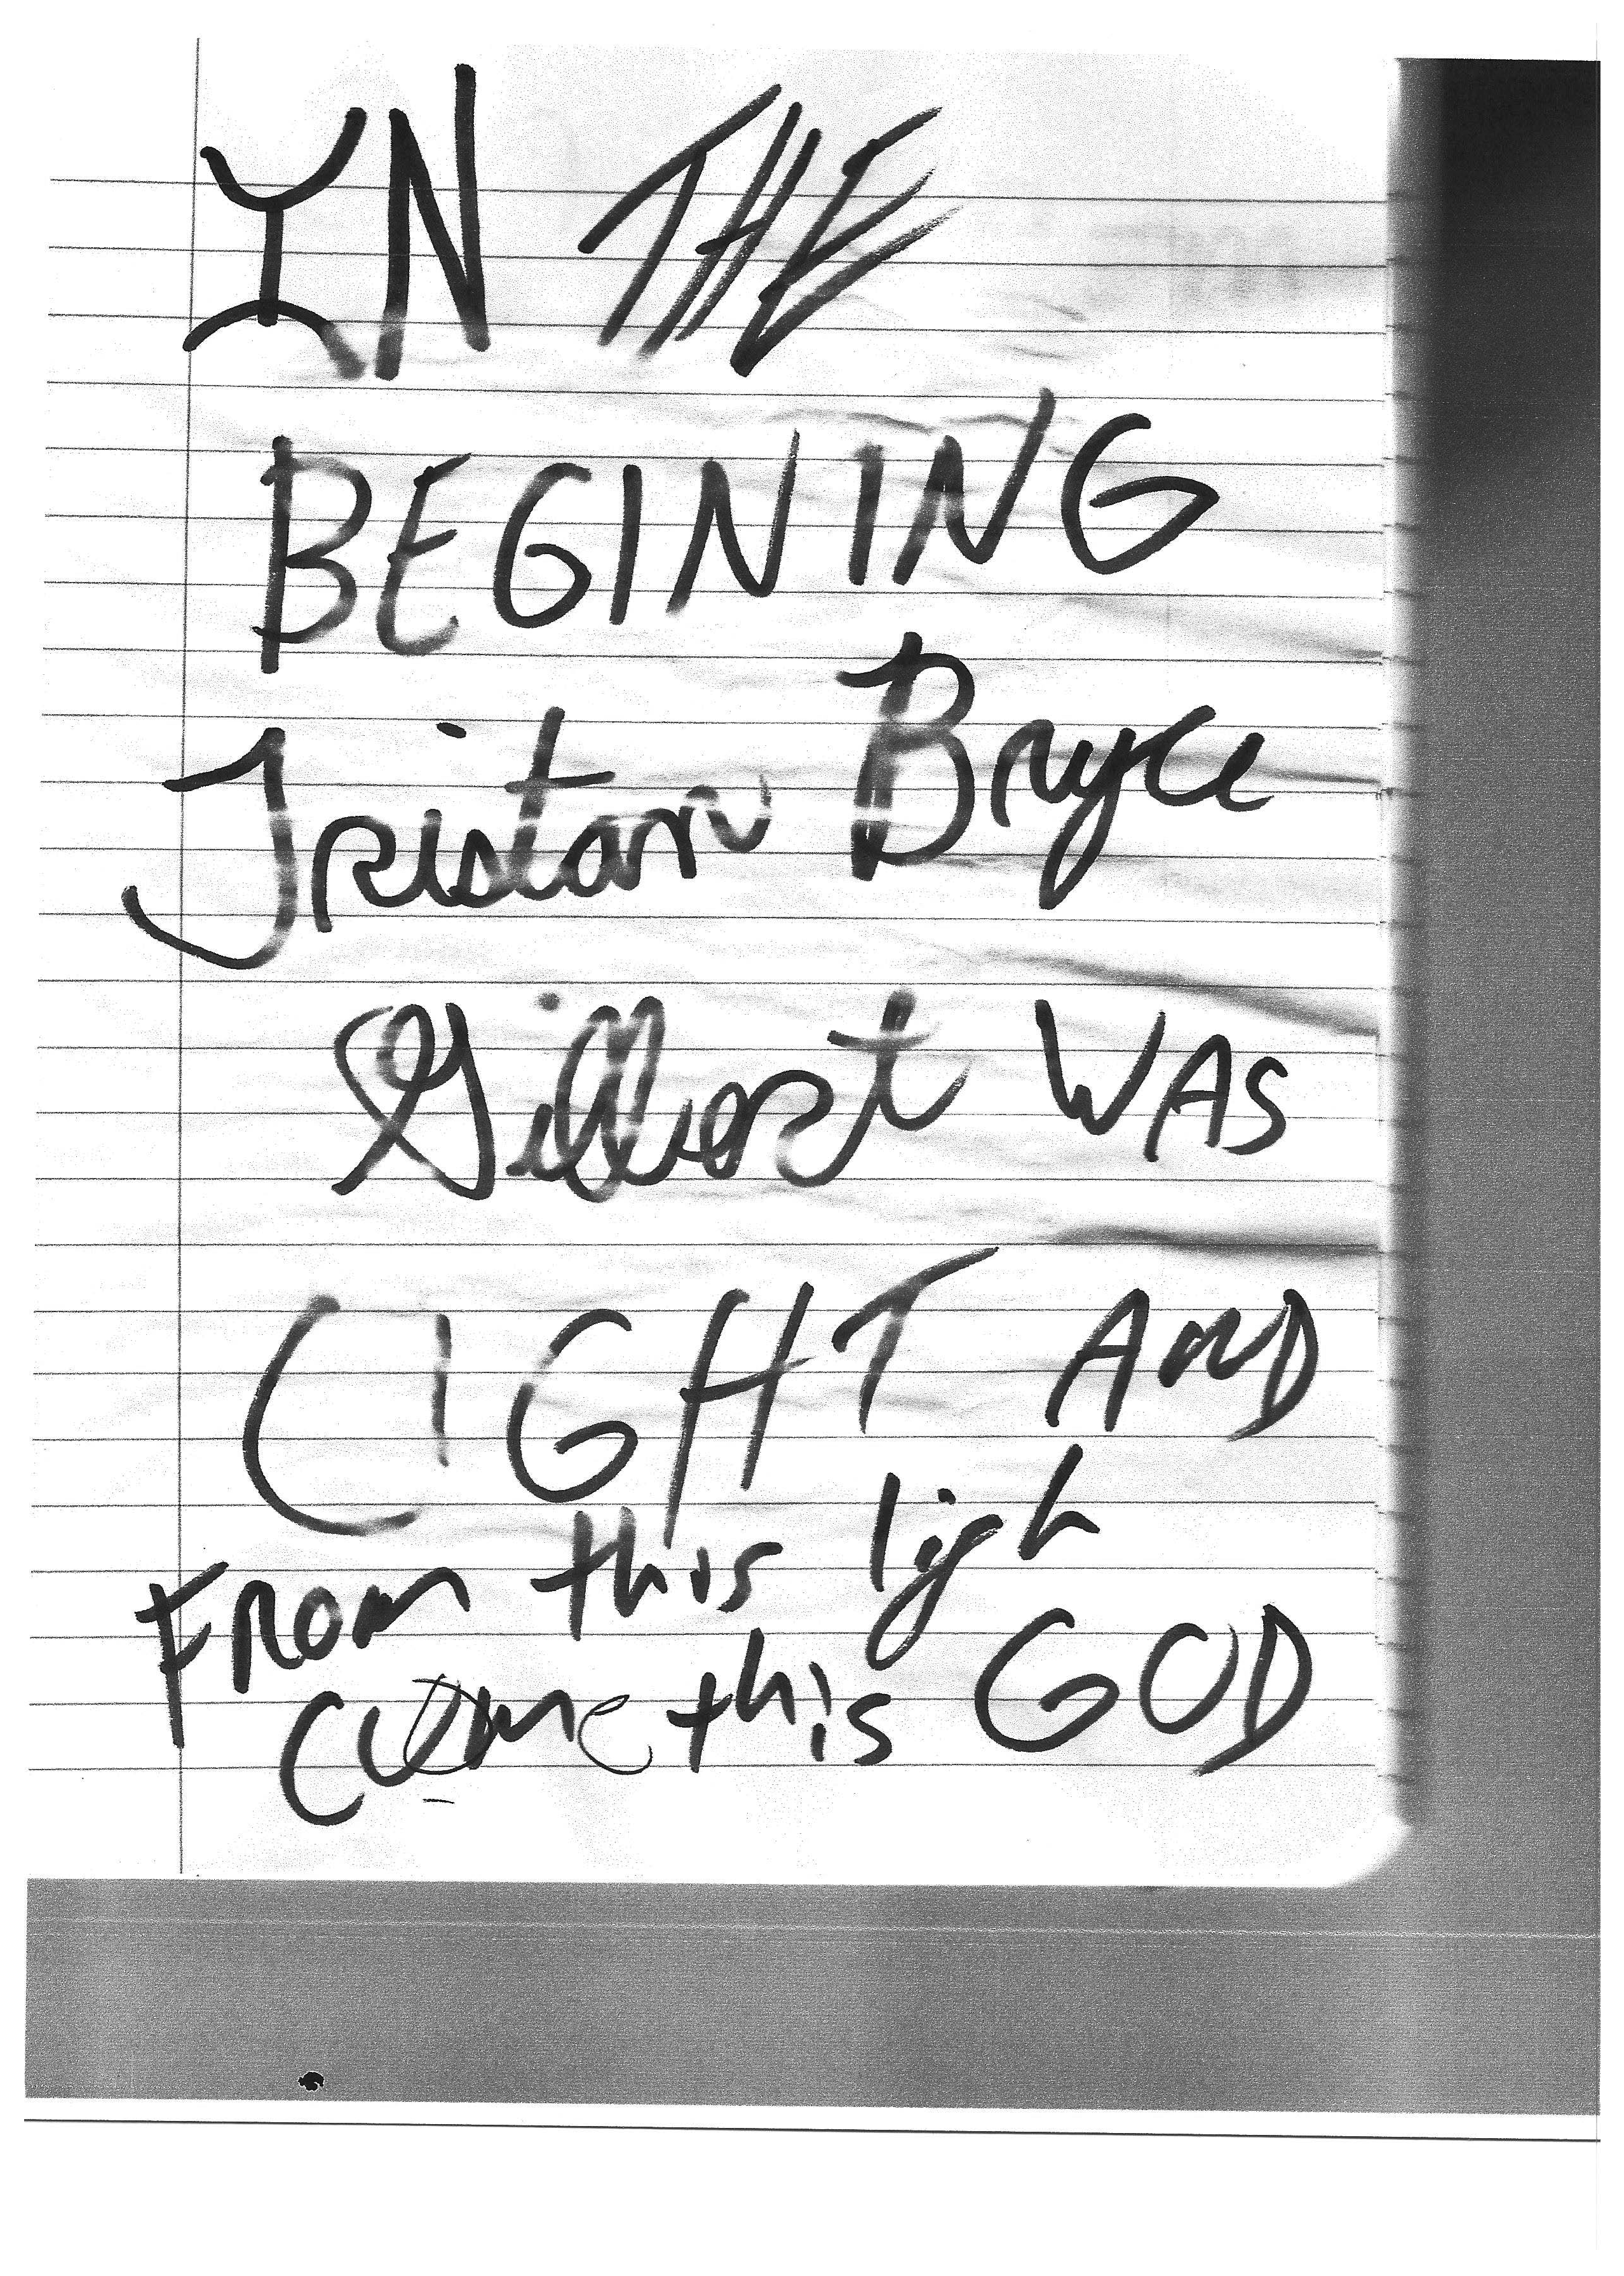 IN THE
BEGINING
Tristan Bryce
Gilbert WAS
LIGHT AND
FROM this ligh
come this GOD